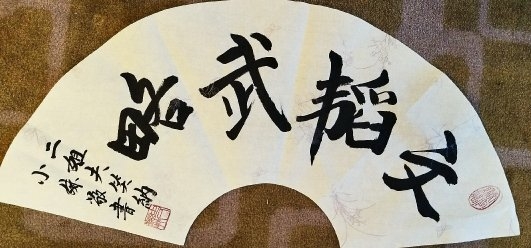 文韬武略
二姐夫笑納
小妹敬書